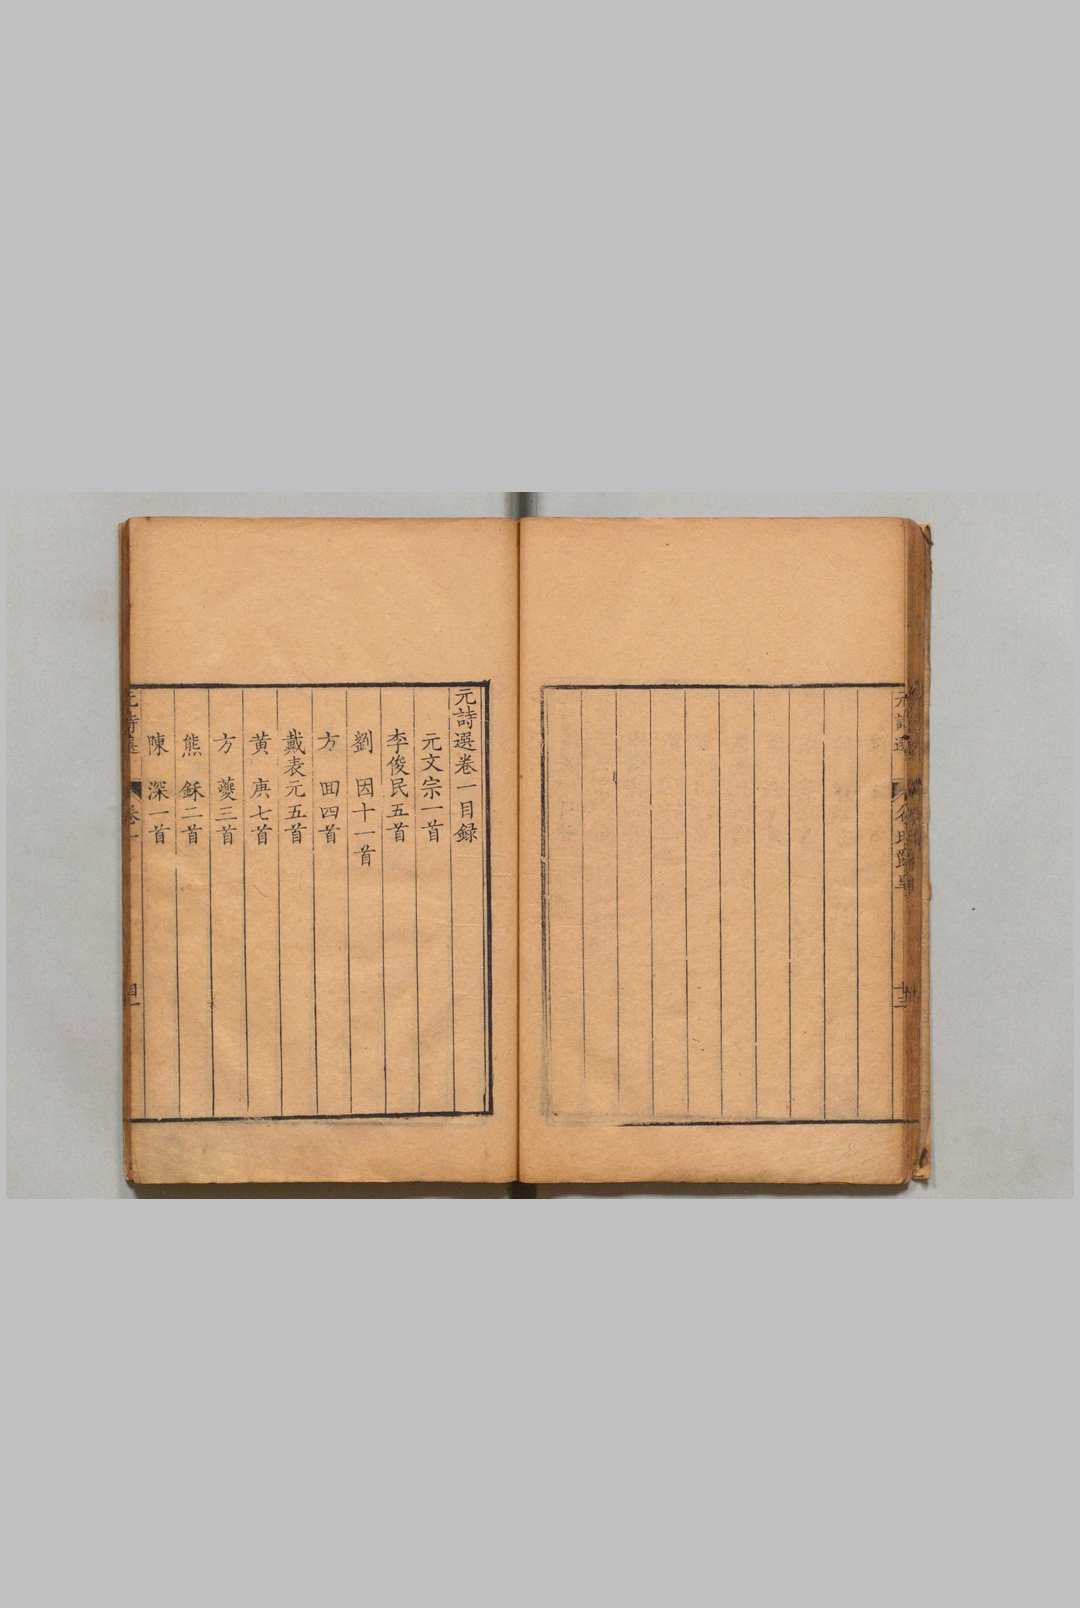 元詩選
元詩選卷一目録
元文宗一首
李俊民五首
劉　因十一首
方　回四首
戴表元五首
黄　庚七首
方　夔三首
熊　鉌二首
陳　深一首
元詩選　卷一